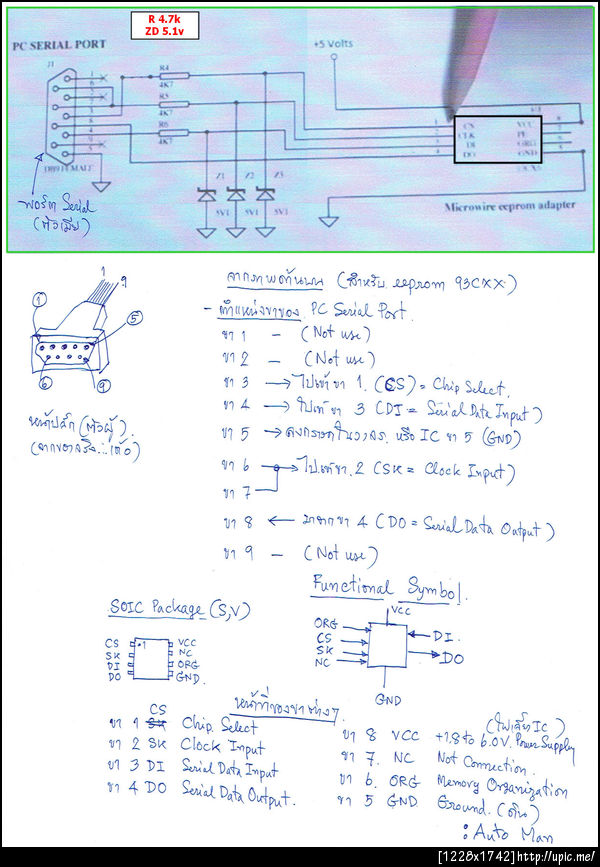 R 4.7k
ZD 5.1v
PC SERIAL PORT
+5 Volts
J1
R4
4K7
R5
4K7
R6
4K7
1
6
2
7
3
8
4
9
5
DB9 FEMALE
Z1 Z2 Z3
5V1 5V1 5V1
1 CS VCC 8
2 CLK PE 7
3 DI ORG 6
4 DO GND 5
Microwire eeprom adapter
พอร์ท Serial
(ตัวเมีย)
จากภาพด้านบน (สำหรับ eeprom 93CXX)
- ตำแหน่งขาของ PC Serial Port.
ขา 1 - (Not use)
ขา 2 - (Not use)
ขา 3 → ไปเข้าขา 1. (CS) = Chip Select.
ขา 4 → ไปเข้า ขา 3 (DI = Serial Data Input)
ขา 5 → ลงกราวด์ในวงจร. หรือ IC ขา 5 (GND)
ขา 6 → ไปเข้าขา. 2 (SK = Clock Input)
ขา 7
ขา 8 ← มาจากขา 4 (DO = Serial Data Output)
ขา 9 - (Not use)
1
9
1
5
6
9
หน้าปลั๊ก (ตัวผู้)
SOIC Package (S,V)
CS VCC
SK NC
DI ORG
DO GND.
1
Functional Symbol.
VCC
ORG
CS
SK
NC
DI.
DO
GND
หน้าที่ของขาต่างๆ
CS
ขา 1 SK Chip Select
ขา 2 SK Clock Input
ขา 3 DI Serial Data Input
ขา 4 DO Serial Data Output.
(ไฟเลี้ยง IC)
ขา 8 VCC +1.8 to 6.0V. Power Supply
ขา 7. NC Not Connection.
ขา 6. ORG Memory Organization
ขา 5 GND Ground. (ดิน)
: Auto Man
[1228x1742]http://upic.me/